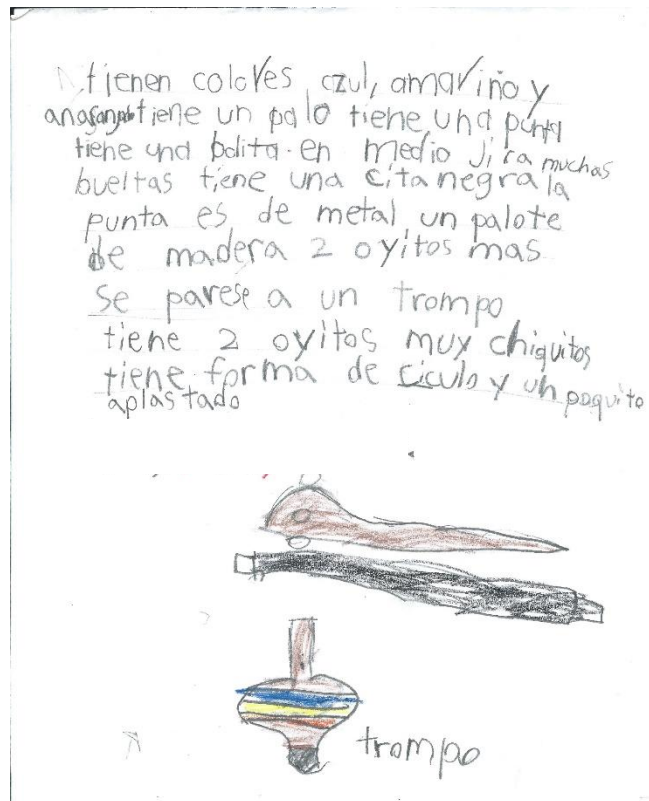 tienen colores azul, amariño y
tiene un palo tiene una punta
tiene una bolita. en medio jira muchas
bueltas tiene una cita negra la
punta es de metal un palote
de madera 2 oyitos mas
se parese a un trompo
tiene 2 oyitos muy chiquitos
tiene forma de ciculo y un poquito
aplastado
trompo